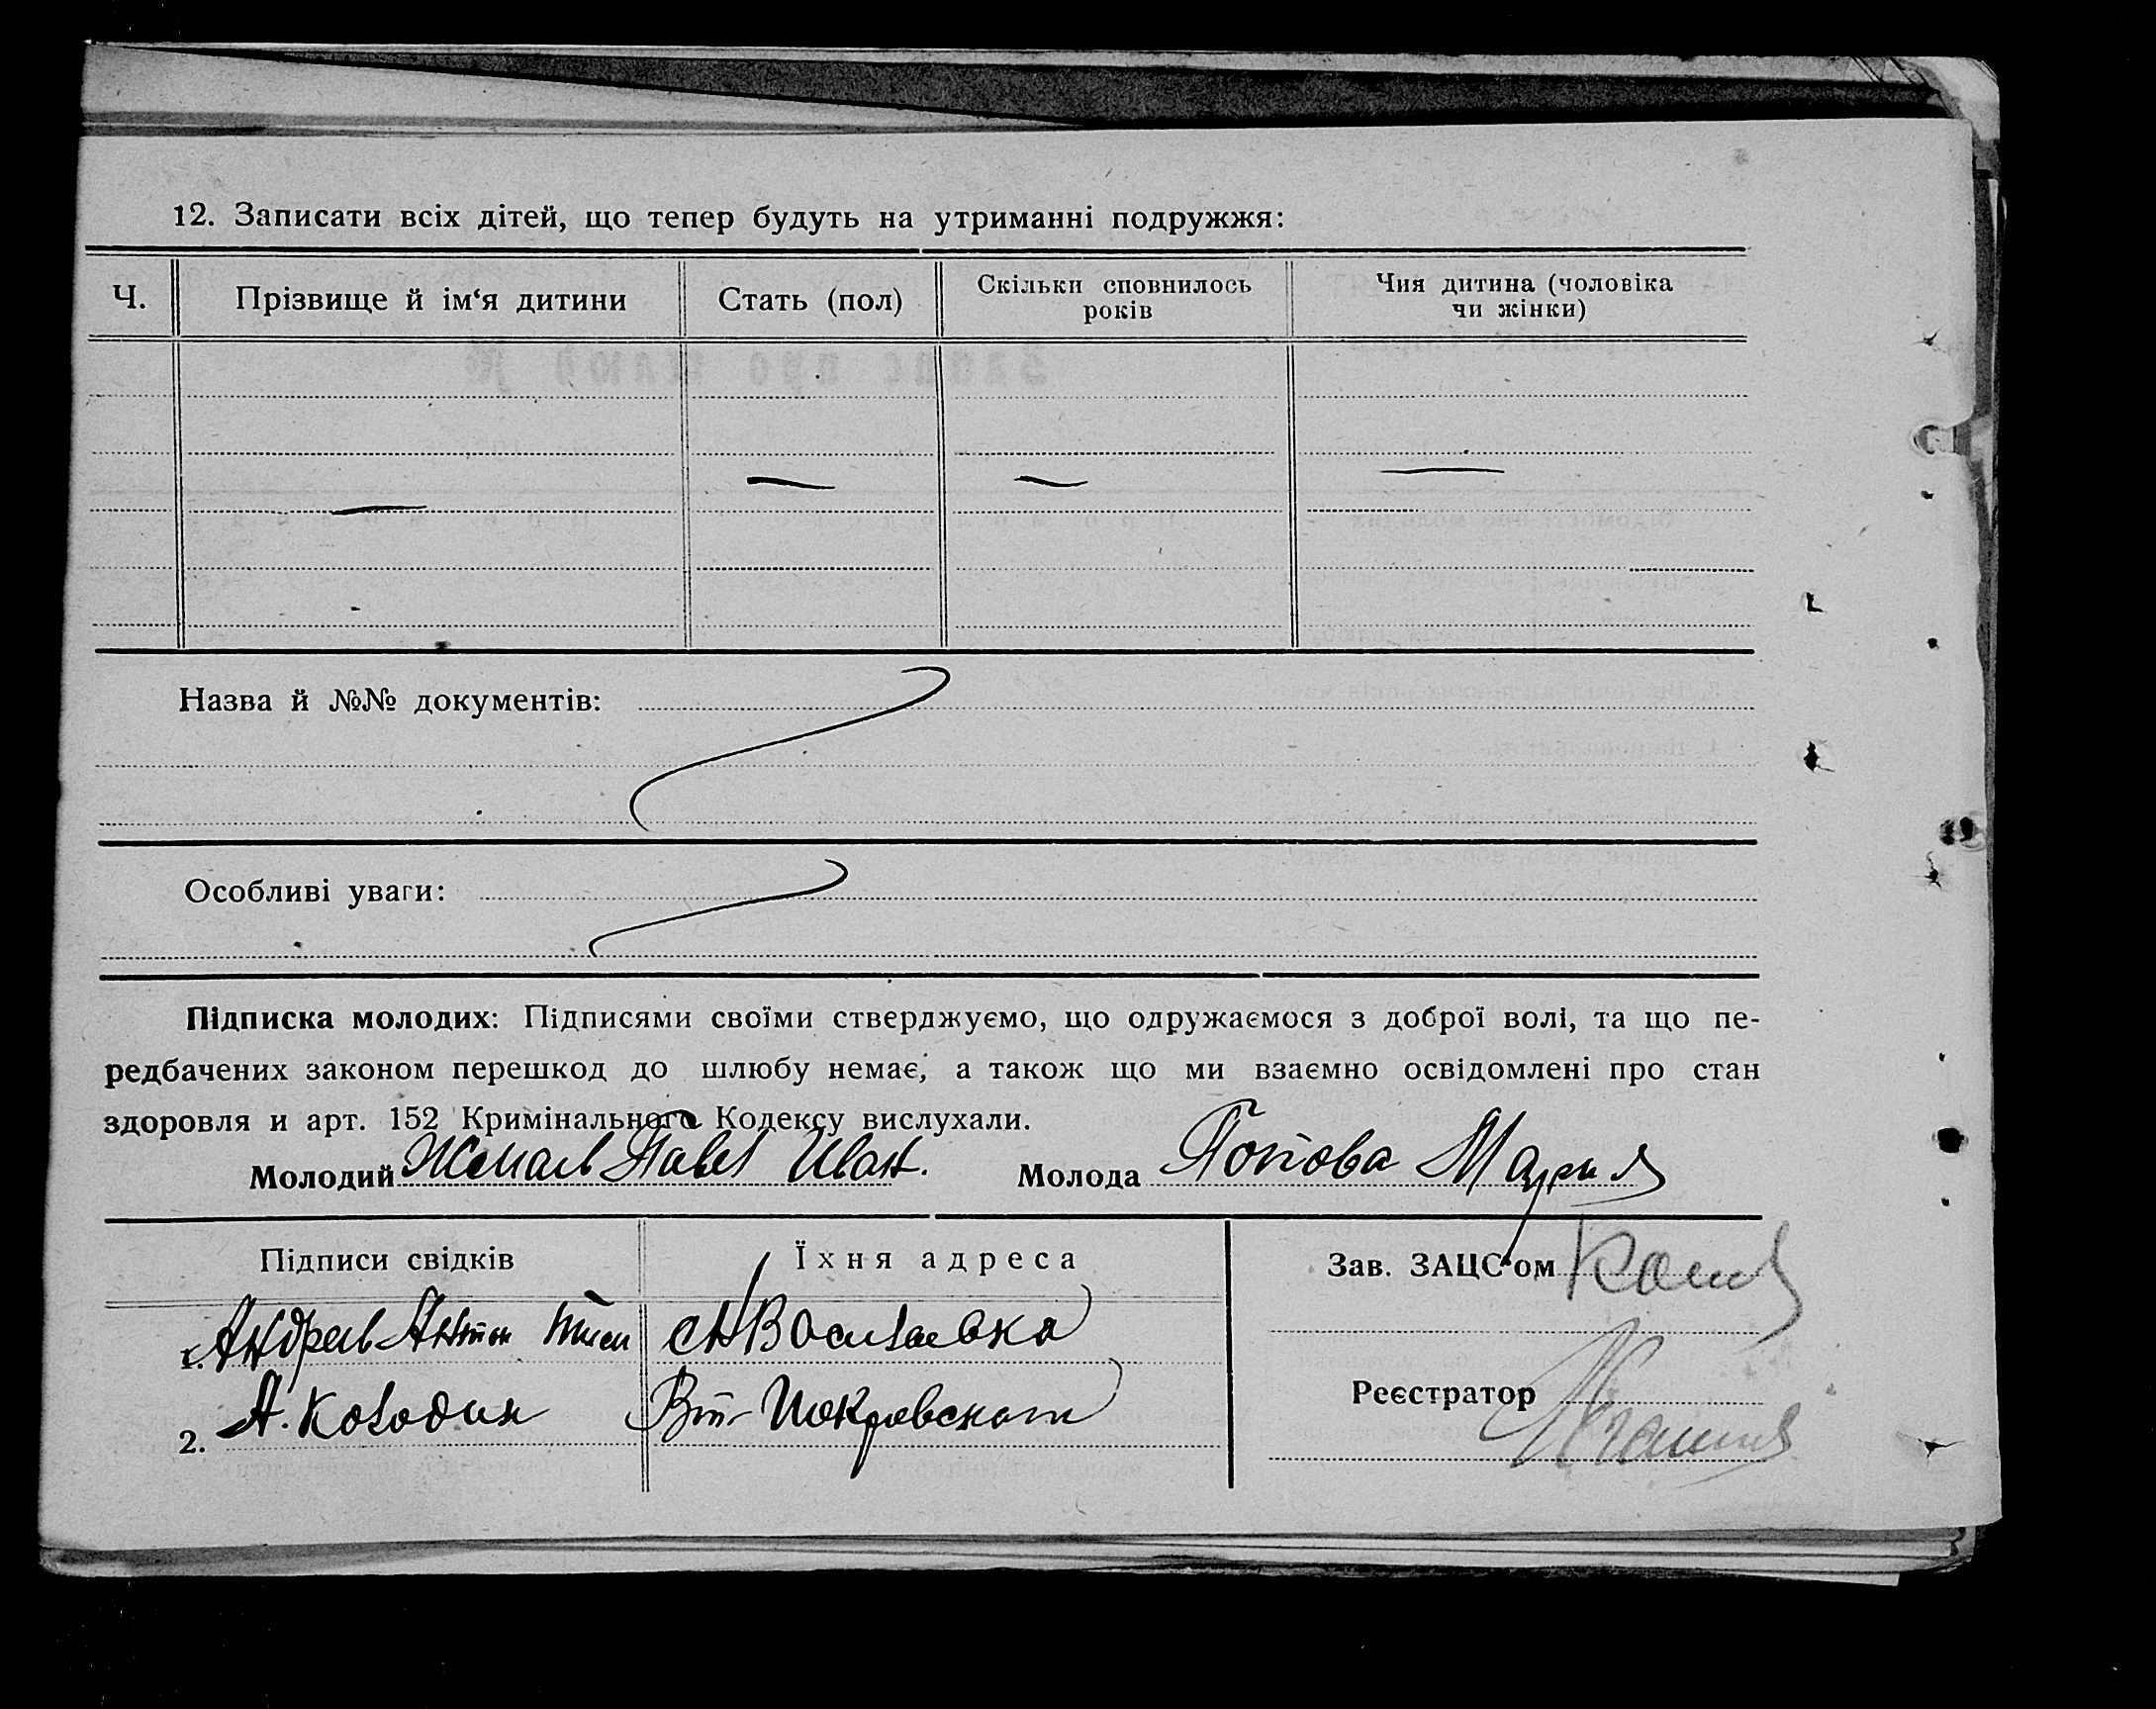 12. Записати всіх дітей, що тепер будуть на утриманні подружжя:
Ч. Прізвище й ім‘я дитини Стать (пол) Скільки сповнилось років Чия дитина (чоловіка чи жінки)
Назва й №№ документів:
Особливі уваги:
Підписка молодих: Підписями своїми стверджуємо, що одружаємося з доброї волі, та що пе-
редбачених законом перешкод до шлюбу немає, а також що ми взаємно освідомлені про стан
здоровля и арт. 152 Кримінального Кодексу вислухали.
Молодий Павел Иван. Молода Попова Мария
Підписи свідків Їхня адреса Зав. ЗАЦС‘ом
1. Антон
2. А. Колодин
Реєстратор